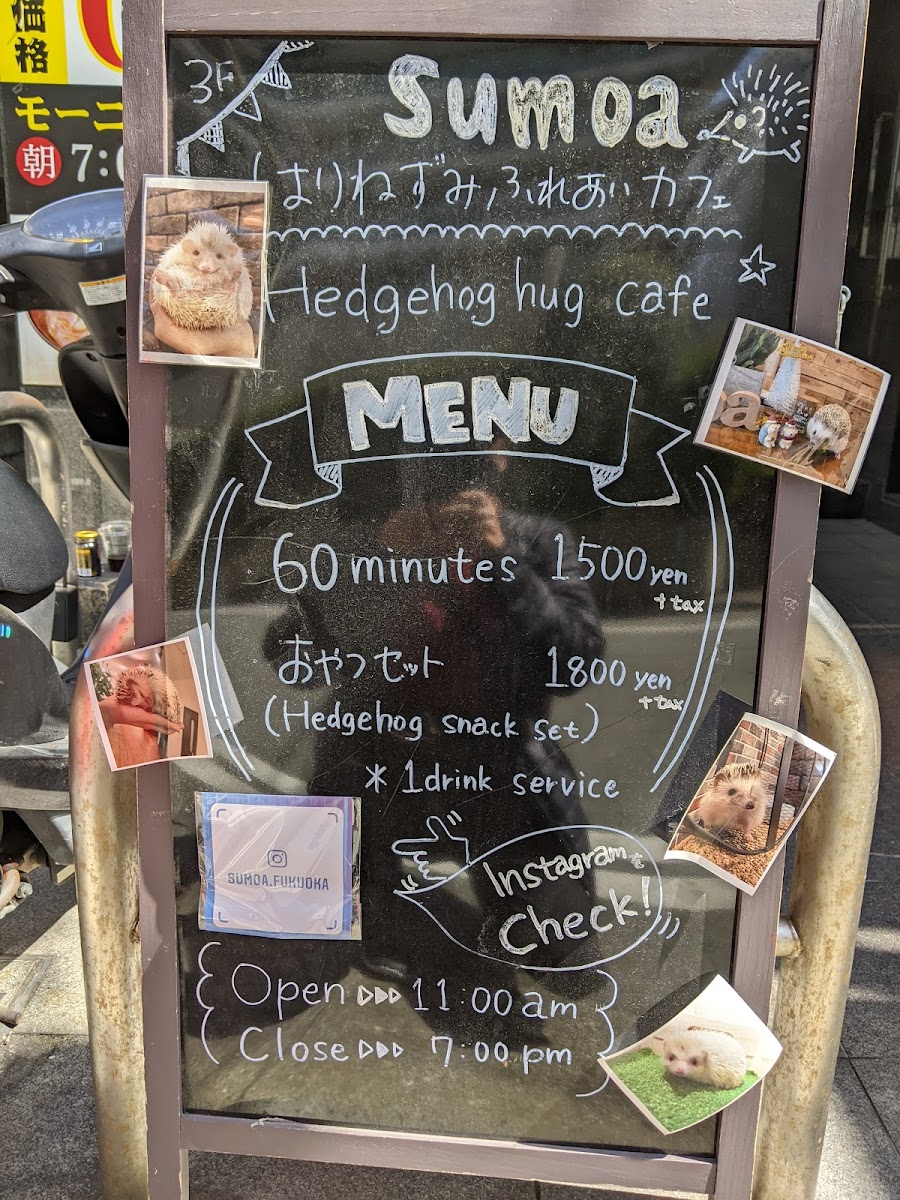 価格
モーニ
朝 7:0
3F
Sumoa
はりねずみふれあいカフェ
Hedgehog hug cafe
MENU
60 minutes 1500 yen
+ tax
おやつセット 1800 yen
+ tax
(Hedgehog snack set)
* 1drink service
SUMOA.FUKUOKA
Instagramも
Check!
Open ▷▷▷ 11:00 am
Close ▷▷▷ 7:00 pm